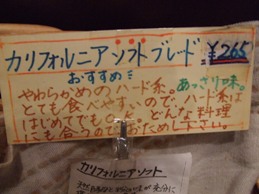 カリフォルニアソフトブレッド ¥265
おすすめ
やわらかめのハード系。あっさり味。
とても食べやすいので、ハード系は
はじめてでもOK。どんな料理
にも合うのでおためし下さい。
カリフォルニアソフト